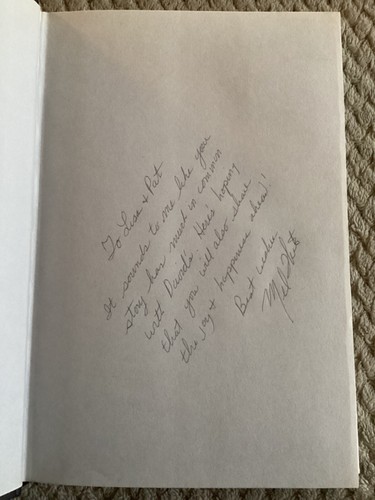 To Lisa & Pat
It sounds to me like your
story has much in common
with David's. Here's hoping
that you will also share
the joy & happiness ahead!
Best wishes
Mel White